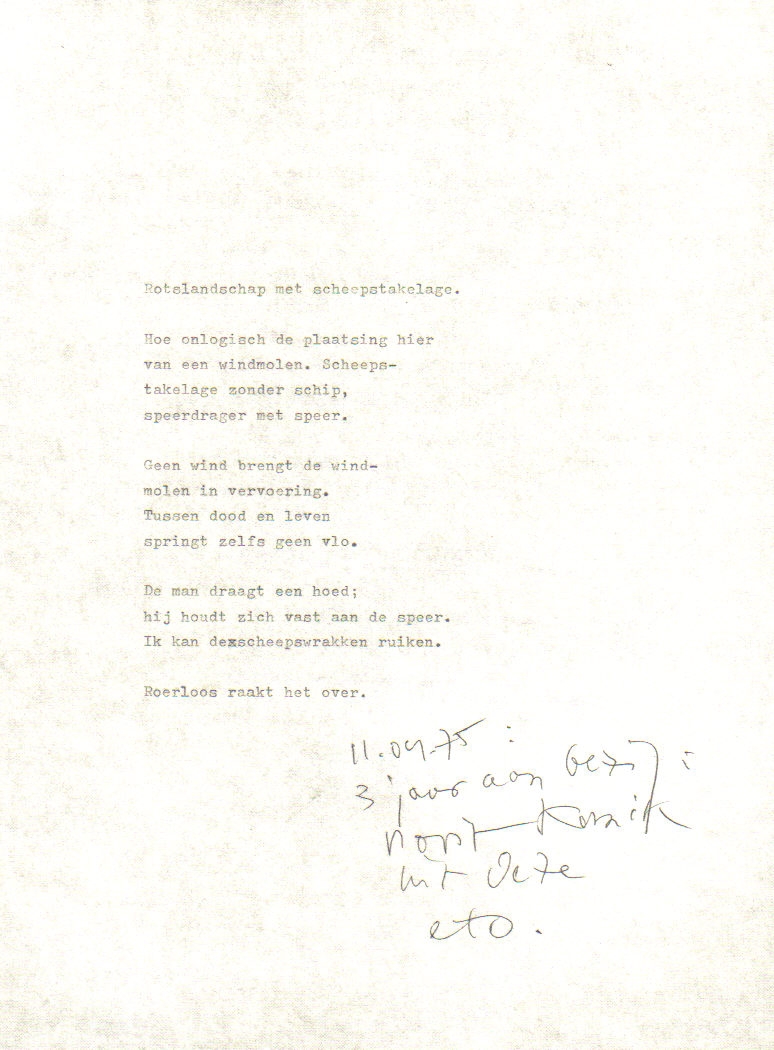 Rotslandschap met scheepstakelage.
Hoe onlogisch de plaatsing hier
van een windmolen. Scheeps-
takelage zonder schip,
speerdrager met speer.
Geen wind brengt de wind-
molen in vervoering.
Tussen dood en leven
springt zelfs geen vlo.
De man draagt een hoed;
hij houdt zich vast aan de speer.
Ik kan dexscheepswrakken ruiken.
Roerloos raakt het over.
11.04.75 :
3 jaar aan bezig :
nooit
uit deze
eto.